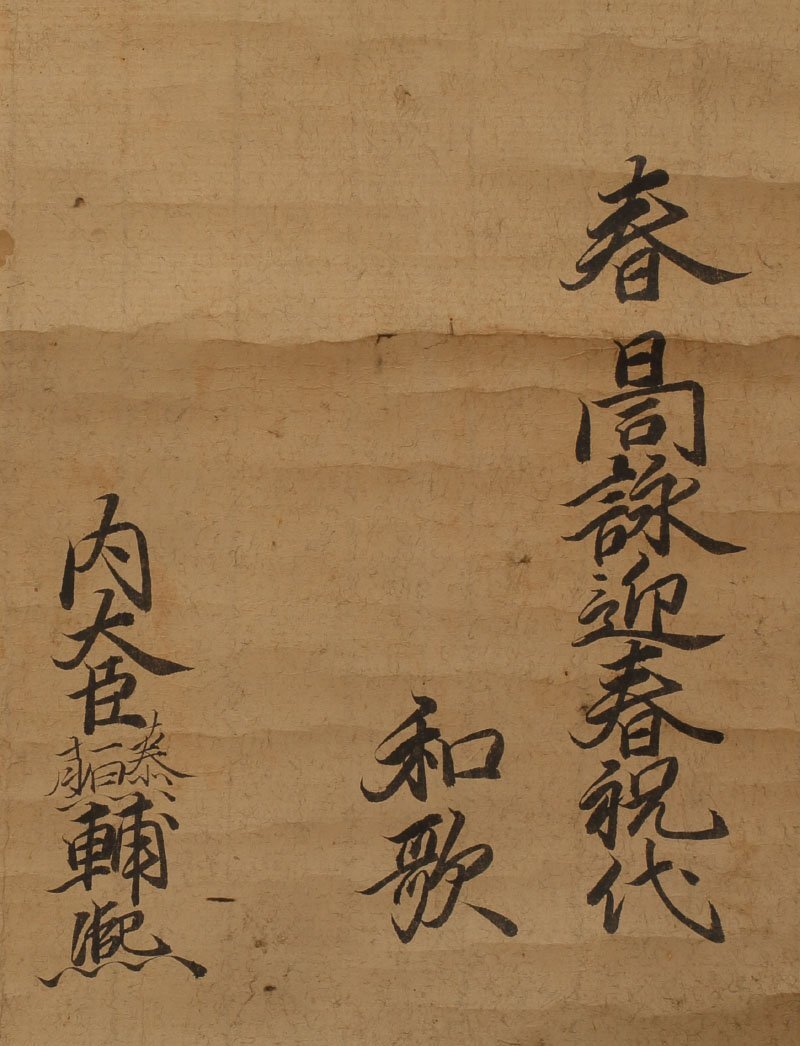 春日同詠迎春祝代
和歌
内大臣藤原輔煕